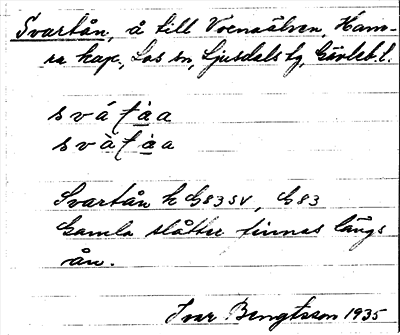 Svartån, å till Voxnaälven, Ham-
ra kap., Los sn, Ljusdals tg, Gävleb. l.
Svartån k G83 SV, G83
Gamla slåtter finnas längs
ån.
Ivar Bengtsson 1935